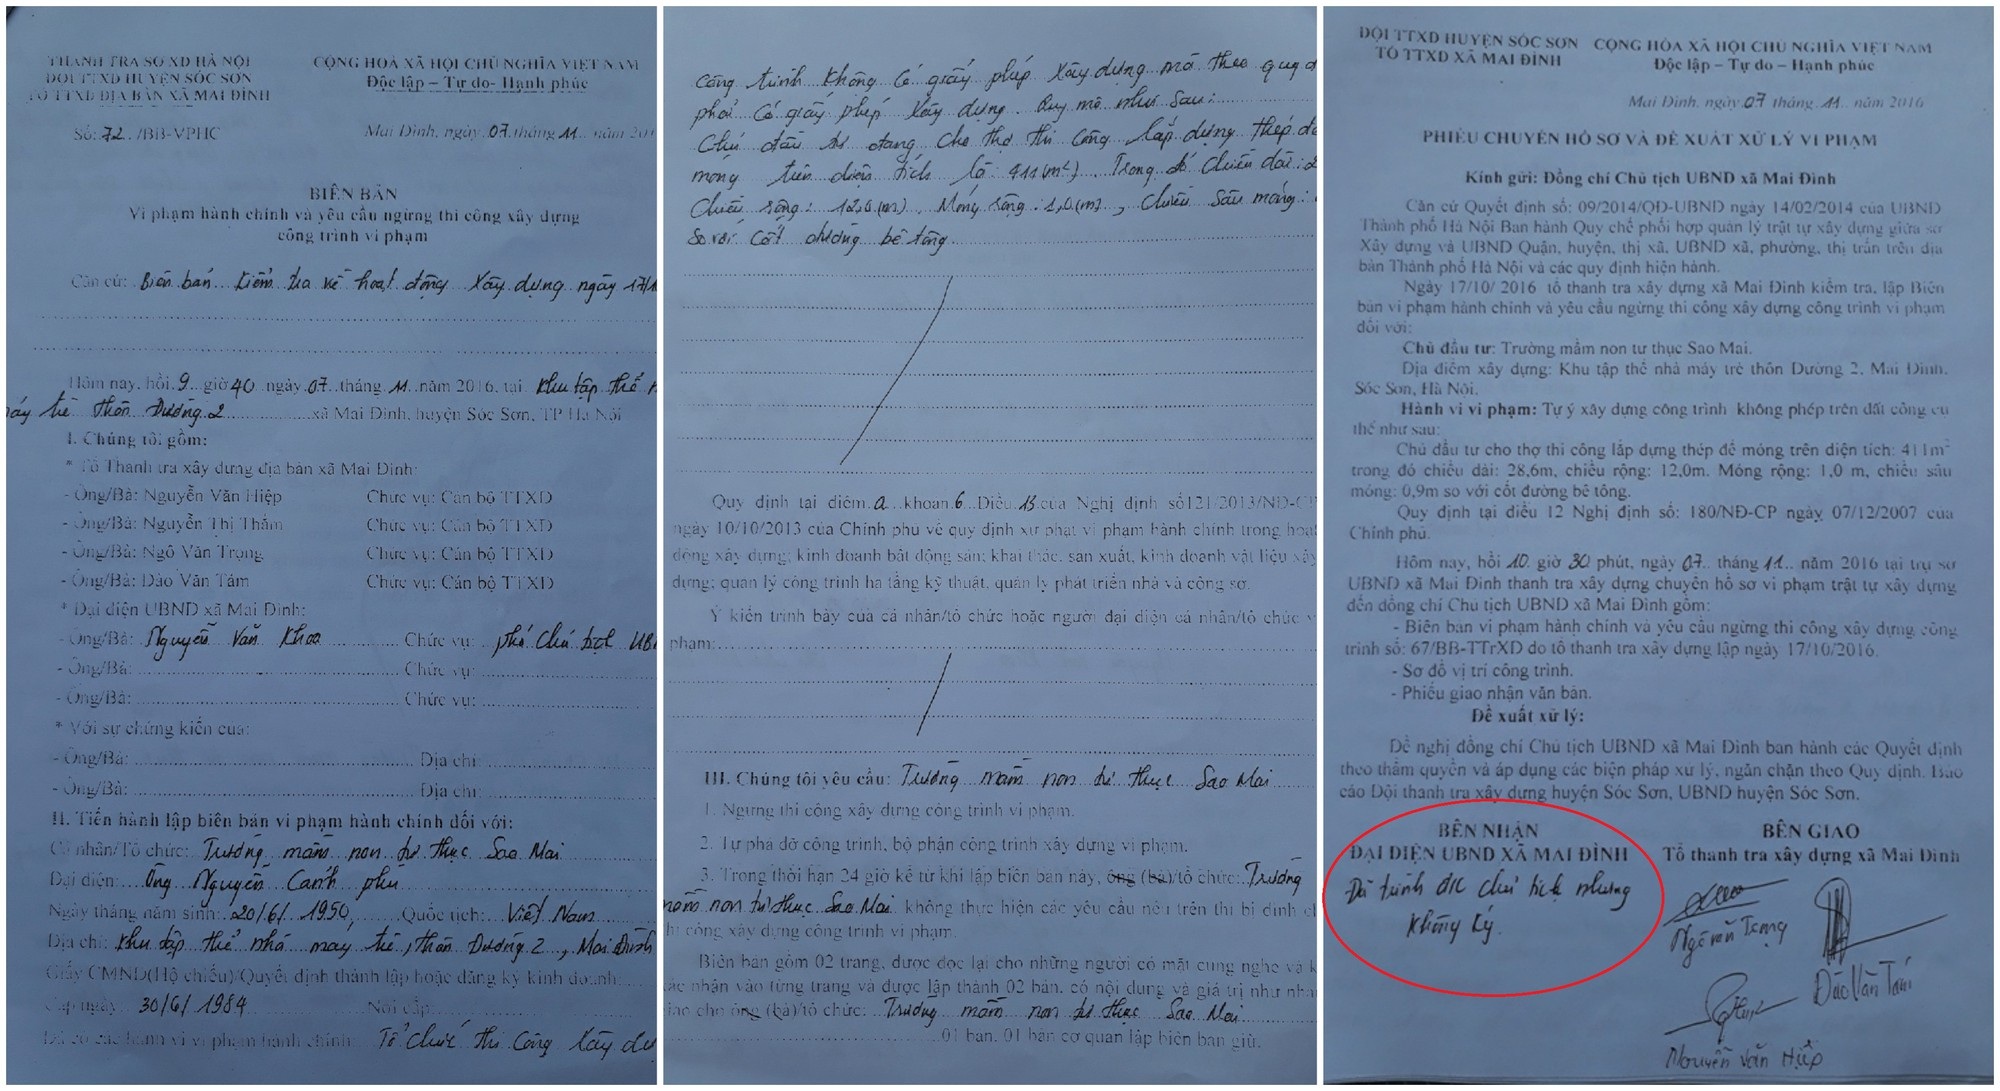 THANH TRA SỞ XD HÀ NỘI
ĐỘI TTXD HUYỆN SÓC SƠN
TỔ TTXD ĐỊA BÀN XÃ MAI ĐÌNH
CỘNG HOÀ XÃ HỘI CHỦ NGHĨA VIỆT NAM
Độc lập – Tự do- Hạnh phúc
Số: 72 /BB-VPHC
Mai Đình, ngày 07 tháng 11 năm 201
BIÊN BẢN
Vi phạm hành chính và yêu cầu ngừng thi công xây dựng
công trình vi phạm
Căn cứ: Biên bản kiểm tra về hoạt động xây dựng ngày 17/1
Hôm nay, hồi 9 giờ 40 ngày 07 tháng 11 năm 2016, tại khu tập thể
máy tre thôn Dương 2 xã Mai Đình, huyện Sóc Sơn, TP Hà Nội
I. Chúng tôi gồm:
* Tổ Thanh tra xây dựng địa bàn xã Mai Đình:
- Ông/Bà: Nguyễn Văn Hiệp Chức vụ: Cán bộ TTXD
- Ông/Bà: Nguyễn Thị Thắm Chức vụ: Cán bộ TTXD
- Ông/Bà: Ngô Văn Trọng Chức vụ: Cán bộ TTXD
- Ông/Bà: Đào Văn Tám Chức vụ: Cán bộ TTXD
* Đại diện UBND xã Mai Đình:
- Ông/Bà: Nguyễn Văn Khoa Chức vụ: phó chủ tịch UB
- Ông/Bà: Chức vụ:
- Ông/Bà: Chức vụ:
* Với sự chứng kiến của:
- Ông/Bà: Địa chỉ:
- Ông/Bà: Địa chỉ:
II. Tiến hành lập biên bản vi phạm hành chính đối với:
Cá nhân/Tổ chức: Trường mầm non tư thục Sao Mai
Đại diện: Ông Nguyễn Cảnh phú
Ngày tháng năm sinh: 20/6/1950, Quốc tịch: Việt Nam
Địa chỉ: khu tập thể nhà máy tre, thôn Dương 2, Mai Đình
Giấy CMND(Hộ chiếu)/Quyết định thành lập hoặc đăng ký kinh doanh:
Cấp ngày: 30/6/1984 Nơi cấp:
Đã có các hành vi vi phạm hành chính: Tổ chức thi công xây dự
công trình không có giấy phép xây dựng mà theo quy đ
phải có giấy phép xây dựng. Quy mô như sau:
Chủ đầu tư đang cho thợ thi công lắp dựng thép đ
móng trên diện tích là: 411(m²). Trong đó chiều dài: 2
chiều rộng: 12,0(m), Móng rộng: 1,0(m), chiều sâu móng:
so với cốt đường bê tông.
Quy định tại điểm a khoản 6 Điều 13 của Nghị định số121/2013/NĐ-CP
ngày 10/10/2013 của Chính phủ về quy định xử phạt vi phạm hành chính trong hoạt
động xây dựng; kinh doanh bất động sản; khai thác, sản xuất, kinh doanh vật liệu xây
dựng; quản lý công trình hạ tầng kỹ thuật, quản lý phát triển nhà và công sở.
Ý kiến trình bày của cá nhân/tổ chức hoặc người đại diện cá nhân/tổ chức v
phạm:
III. Chúng tôi yêu cầu: Trường mầm non tư thục Sao Mai
1. Ngừng thi công xây dựng công trình vi phạm.
2. Tự phá dỡ công trình, bộ phận công trình xây dựng vi phạm.
3. Trong thời hạn 24 giờ kể từ khi lập biên bản này, ông (bà)/tổ chức: Trường
mầm non tư thục Sao Mai không thực hiện các yêu cầu nêu trên thì bị đình ch
hi công xây dựng công trình vi phạm.
Biên bản gồm 02 trang, được đọc lại cho những người có mặt cùng nghe và k
ác nhận vào từng trang và được lập thành 02 bản, có nội dung và giá trị như nha
iao cho ông (bà)/tổ chức: Trường mầm non tư thục Sao Mai
01 bản, 01 bản cơ quan lập biên bản giữ.
ĐỘI TTXD HUYỆN SÓC SƠN
TỔ TTXD XÃ MAI ĐÌNH
CỘNG HÒA XÃ HỘI CHỦ NGHĨA VIỆT NAM
Độc lập – Tự do – Hạnh phúc
Mai Đình, ngày 07 tháng 11 năm 2016
PHIẾU CHUYỂN HỒ SƠ VÀ ĐỀ XUẤT XỬ LÝ VI PHẠM
Kính gửi: Đồng chí Chủ tịch UBND xã Mai Đình
Căn cứ Quyết định số: 09/2014/QĐ-UBND ngày 14/02/2014 của UBND
Thành phố Hà Nội Ban hành Quy chế phối hợp quản lý trật tự xây dựng giữa sở
Xây dựng và UBND Quận, huyện, thị xã, UBND xã, phường, thị trấn trên địa
bàn Thành phố Hà Nội và các quy định hiện hành.
Ngày 17/10/ 2016 tổ thanh tra xây dựng xã Mai Đình kiểm tra, lập Biên
bản vi phạm hành chính và yêu cầu ngừng thi công xây dựng công trình vi phạm
đối với:
Chủ đầu tư: Trường mầm non tư thục Sao Mai.
Địa điểm xây dựng: Khu tập thể nhà máy tre thôn Dường 2, Mai Đình,
Sóc Sơn, Hà Nội.
Hành vi vi phạm: Tự ý xây dựng công trình không phép trên đất công cụ
thể như sau:
Chủ đầu tư cho thợ thi công lắp dựng thép đế móng trên diện tích: 411m²
trong đó chiều dài: 28,6m, chiều rộng: 12,0m. Móng rộng: 1,0 m, chiều sâu
móng: 0,9m so với cốt đường bê tông.
Quy định tại điều 12 Nghị định số: 180/NĐ-CP ngày 07/12/2007 của
Chính phủ.
Hôm nay, hồi 10 giờ 30 phút, ngày 07 tháng 11 năm 2016 tại trụ sở
UBND xã Mai Đình thanh tra xây dựng chuyển hồ sơ vi phạm trật tự xây dựng
đến đồng chí Chủ tịch UBND xã Mai Đình gồm:
- Biên bản vi phạm hành chính và yêu cầu ngừng thi công xây dựng công
trình số: 67/BB-TTrXD do tổ thanh tra xây dựng lập ngày 17/10/2016.
- Sơ đồ vị trí công trình.
- Phiếu giao nhận văn bản.
Đề xuất xử lý:
Đề nghị đồng chí Chủ tịch UBND xã Mai Đình ban hành các Quyết định
theo thẩm quyền và áp dụng các biện pháp xử lý, ngăn chặn theo Quy định. Báo
cáo Đội thanh tra xây dựng huyện Sóc Sơn, UBND huyện Sóc Sơn.
BÊN NHẬN
ĐẠI DIỆN UBND XÃ MAI ĐÌNH
Đã trình đ/c chủ tịch nhưng
không ký.
BÊN GIAO
Tổ thanh tra xây dựng xã Mai Đình
Ngô văn Trọng
Đào Văn Tám
Nguyễn văn Hiệp